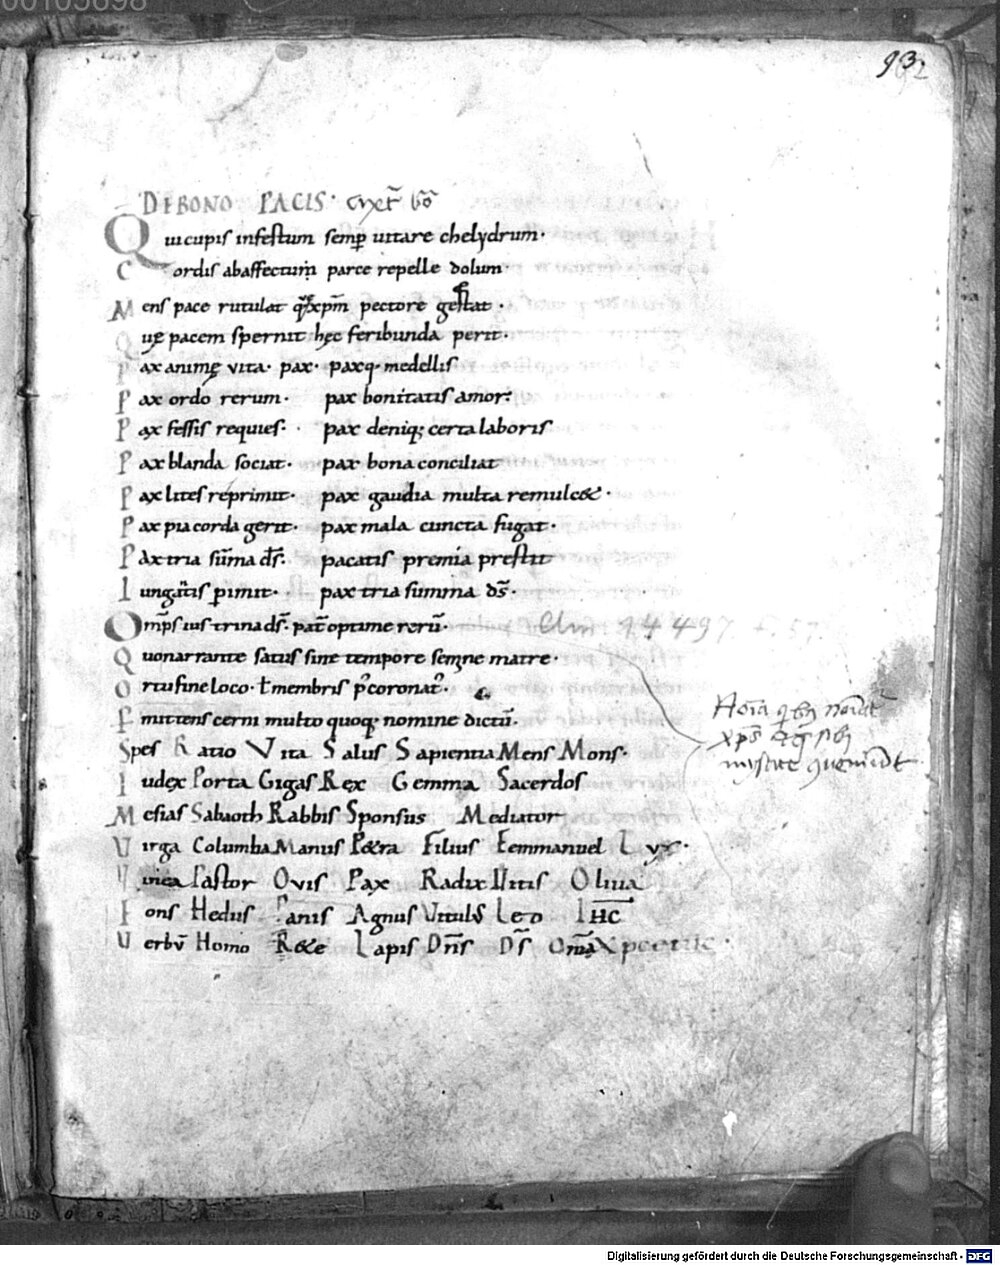 00105698
93
DE BONO PACIS·
Qui cupis infestum semp̄ uitare chelydrum·
Cordis ab affectum parce repelle dolum
Mens pace rutulat pectore gestat·
Quę pacem spernit hęc feribunda perit·
Pax animę vita· pax· paxq· medellis
Pax ordo rerum· pax bonitatis amor:
Pax fessis requies· pax deniq; certa laboris
Pax blanda sociat· pax bona conciliat
Pax lites reprimit· pax gaudia multa remulc&·
Pax pia corda gerit· pax mala cuncta fugat·
Pax tria sūma ds̄· pacatis premia prestit
Iungatis pimit· pax tria summa ds̄·
Omps ius trina ds̄· pat optime rerū·
Quo narrante satus sine tempore semine matre·
Ortu sine loco· membris coronat·
Emittens cerni multo quoq; nomine dictū·
Spes Ratio Vita Salus Sapientia Mens Mons·
Iudex Porta Gigas Rex Gemma Sacerdos
Mesias Sabaoth Rabbis Sponsus Mediator
Virga Columba Manus P&ra Filius Eemmanuel Lyx·
Vinea Pastor Ovis Pax Radix Vitis Oliua
Fons Hedus Panis Agnus Vitulus Leo IHC
Verbū Homo R&e Lapis Dn̄s Ds̄ Omā
Clm 14497 f. 57
Digitalisierung gefördert durch die Deutsche Forschungsgemeinschaft - DFG